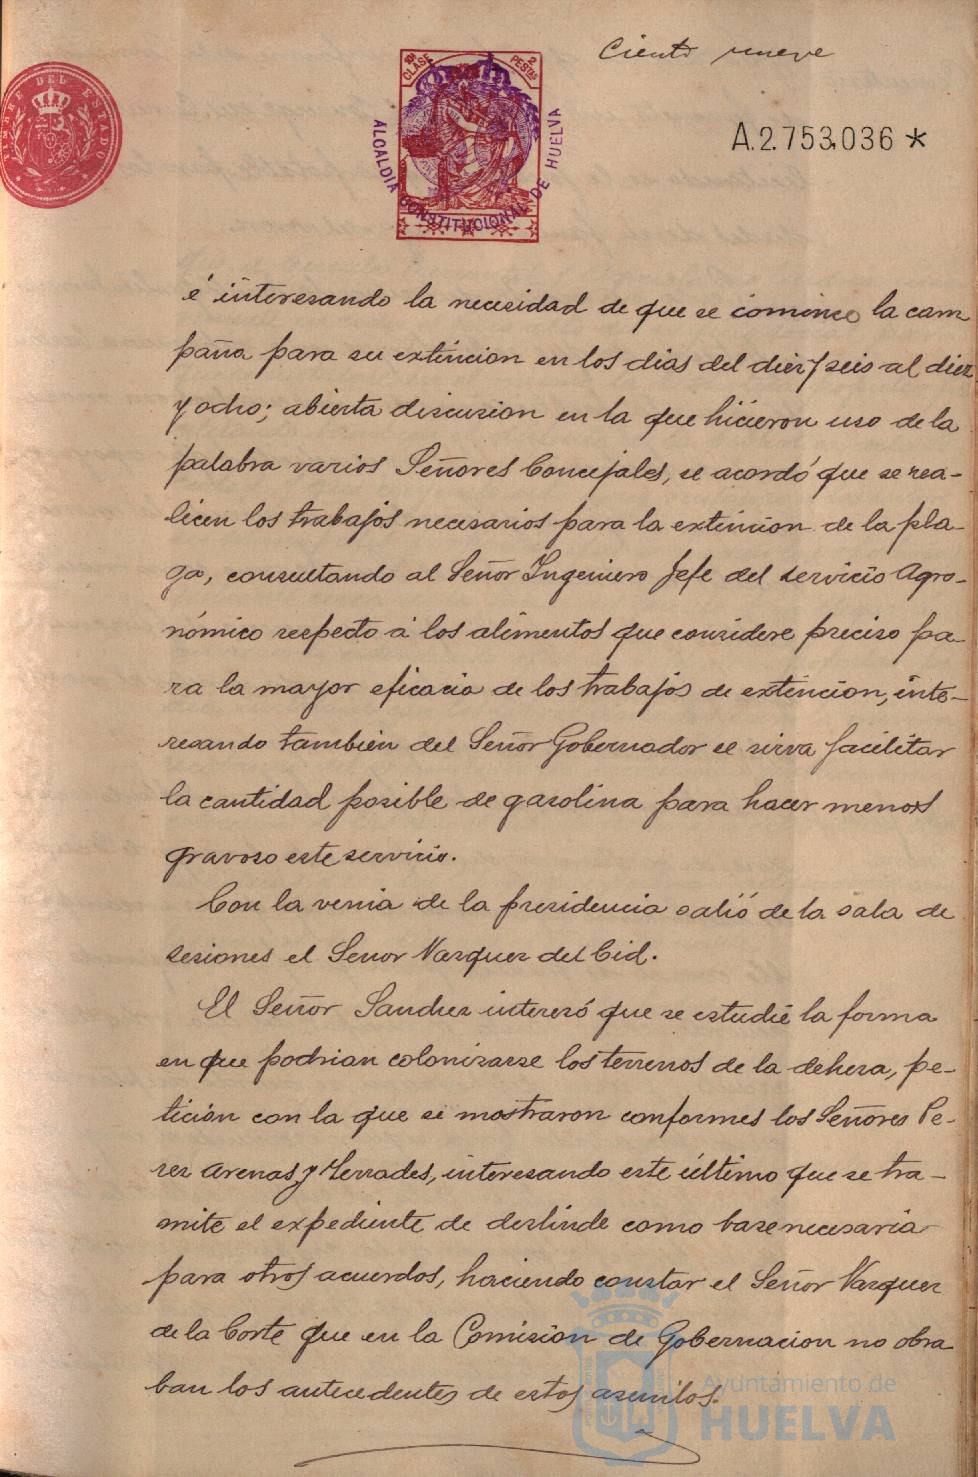 Ciento nueve
TIMBRE DEL ESTADO
10ª CLASE 2 PESTAS
ALCALDIA CONSTITUCIONAL DE HUELVA
A.2.753,036 *
é interesando la necesidad de que se comince la cam
paña para su extincion en los dias del diez y seis al diez
y ocho; abierta discusion en la que hicieron uso de la
palabra varios Señores Concejales, se acordó que se rea-
licen los trabajos necesarios para la extincion de la pla-
ga, consultando al Señor Ingeniero Jefe del servicio Agro-
nómico respecto á los alimentos que considere preciso pa-
ra la mayor eficacia de los trabajos de extincion, inte-
resando tambien del Señor Gobernador se sirva facilitar
la cantidad posible de gasolina para hacer menos
gravoso este servicio.
Con la venia de la presidencia salió de la sala de
sesiones el Señor Vazquez del Cid.
El Señor Sanchez interesó que se estudie la forma
en que podrian colonizarse los terrenos de la dehesa, pe-
ticion con la que se mostraron conformes los Señores Pe-
rez Arenas y Terrades, interesando este último que se tra-
mite el expediente de deslinde como base necesaria
para otros acuerdos, haciendo constar el Señor Vazquez
de la Corte que en la Comision de Gobernacion no obra
ban los antecedentes de estos asuntos.
Ayuntamiento de
HUELVA